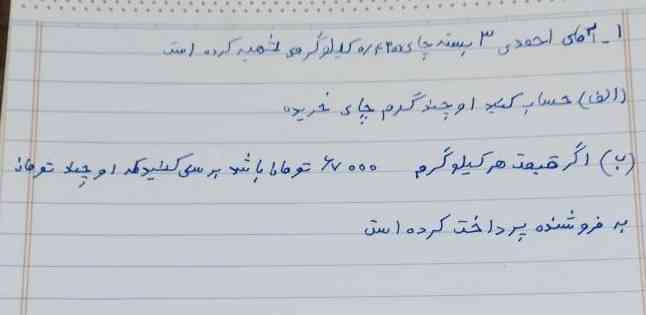 ۱_ آقای احمدی ۳ بسته چای ۰/۴۲۵ کیلوگرمی تهیه کرده است
(الف) حساب کنید او چند گرم چای خریده
(ب) اگر قیمت هر کیلوگرم ۶۷۰۰۰ تومان باشد بررسی کنید که او چند تومان
به فروشنده پرداخت کرده است